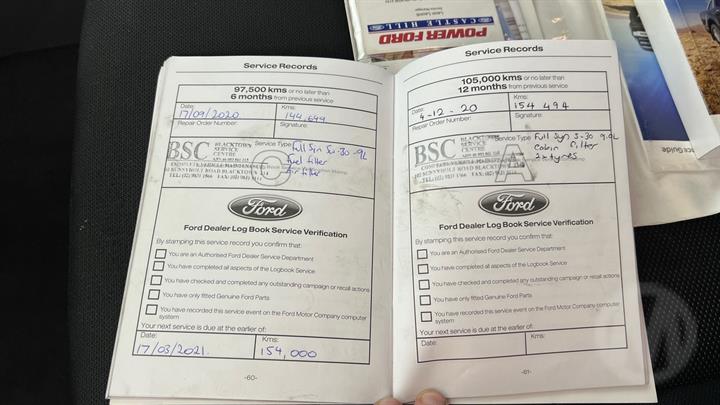 Service Manager
POWER FORD
CASTLE HILL
Service Records
97,500 kms or no later than
6 months from previous service
Date:
17/09/2020
Kms:
144,649
Repair Order Number:
Signature:
BSC
BLACKTOWN
SERVICE
CENTRE
Service Type
Full Syn 5w-30 -9L
Fuel filter
Air filter
COMPLETE VEHICLE MAINTENANCE
Ford
Ford Dealer Log Book Service Verification
By stamping this service record you confirm that:
You are an Authorised Ford Dealer Service Department
You have completed all aspects of the Logbook Service
You have checked and completed any outstanding campaign or recall actions
You have only fitted Genuine Ford Parts
You have recorded this service event on the Ford Motor Company computer
system
Your next service is due at the earlier of:
Date:
17/03/2021.
Kms:
154,000
-60-
Service Records
105,000 kms or no later than
12 months from previous service
Date:
4-12-20
Kms:
154 494
Repair Order Number:
Signature:
BSC
BLACKTOWN
SERVICE
CENTRE
Service Type
Full Syn 5-30 9.9L
Cabin Filter
2x tyres
Ford
Ford Dealer Log Book Service Verification
By stamping this service record you confirm that:
You are an Authorised Ford Dealer Service Department
You have completed all aspects of the Logbook Service
You have checked and completed any outstanding campaign or recall actions
You have only fitted Genuine Ford Parts
You have recorded this service event on the Ford Motor Company computer
system
Your next service is due at the earlier of:
Date:
Kms:
-61-
ce Guide